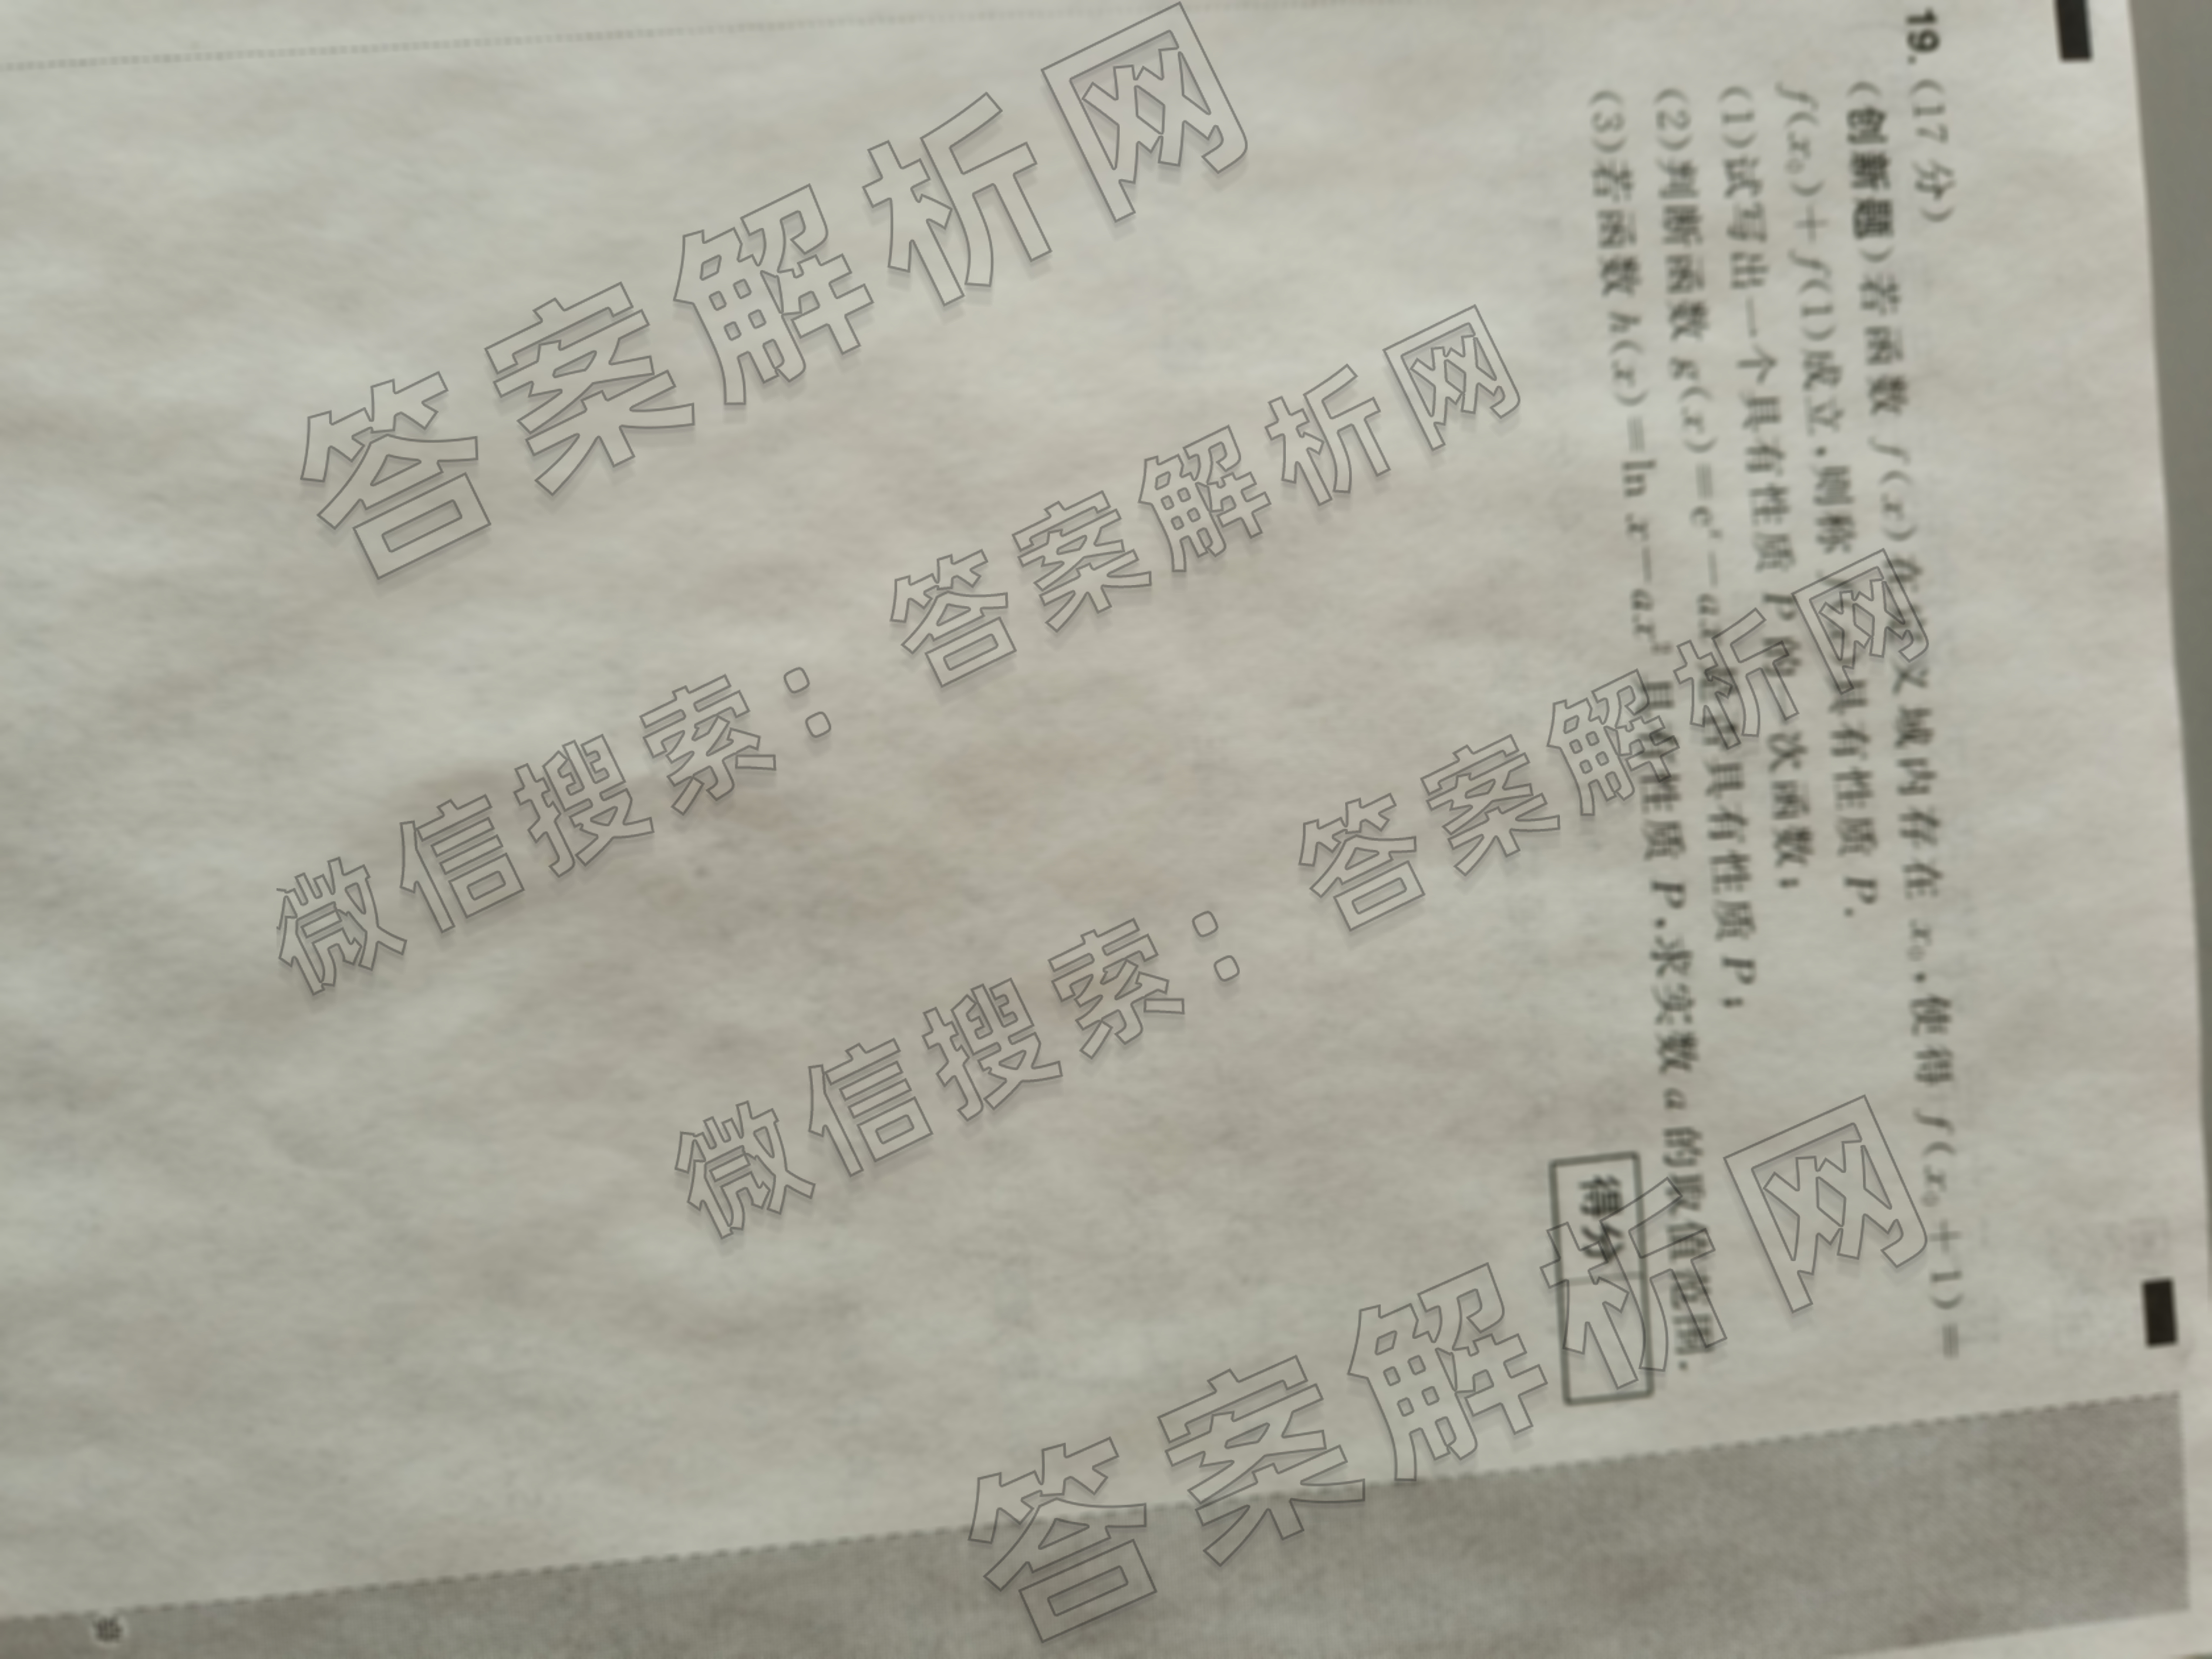 19. (17 分)
(创新题)若函数 f(x) 在定义域内存在 x₀,使得 f(x₀+1)=
f(x₀)+f(1)成立,则称 f(x) 具有性质 P.
(1)试写出一个具有性质 P 的一次函数;
(2)判断函数 g(x)=eˣ-ax 是否具有性质 P;
(3)若函数 h(x)=ln x-ax² 具有性质 P,求实数 a 的取值范围.
得分
答案解析网
微信搜索:答案解析网
微信搜索:答案解析网
答案解析网